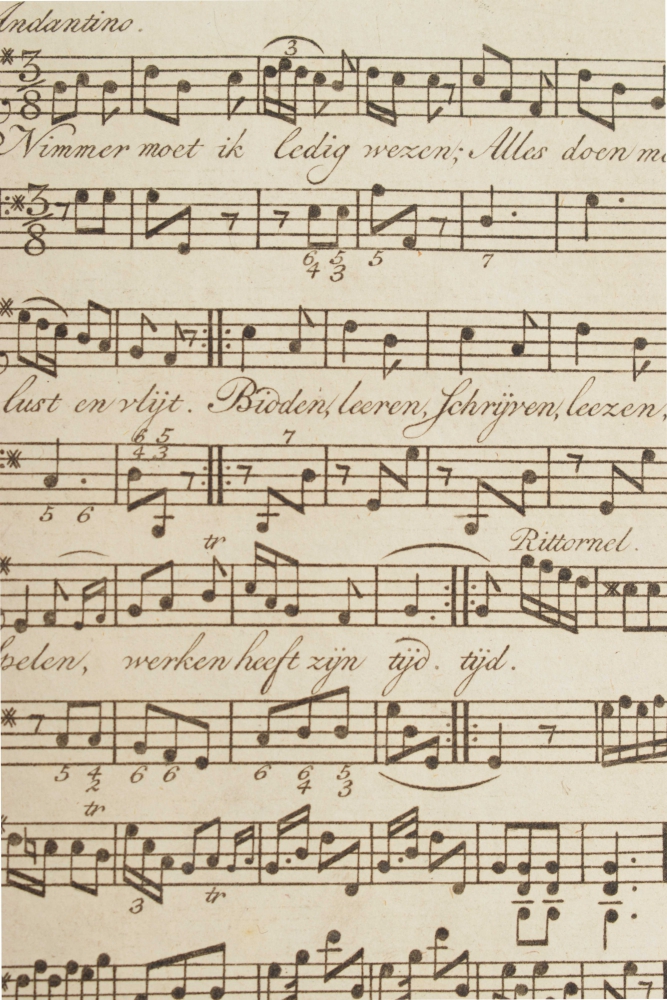 Andantino.
3
3
8
Nimmer moet ik ledig wezen; Alles doen
3
8
6 5
4 3
5
7
lust en vlijt. Bidden, leeren, Schrijven, leezen,
6 5
4 3
7
5 6
tr
Rittornel.
werken heeft zijn tijd. tijd.
5 4
2
6 6
6 6 5
4 3
tr
3
tr